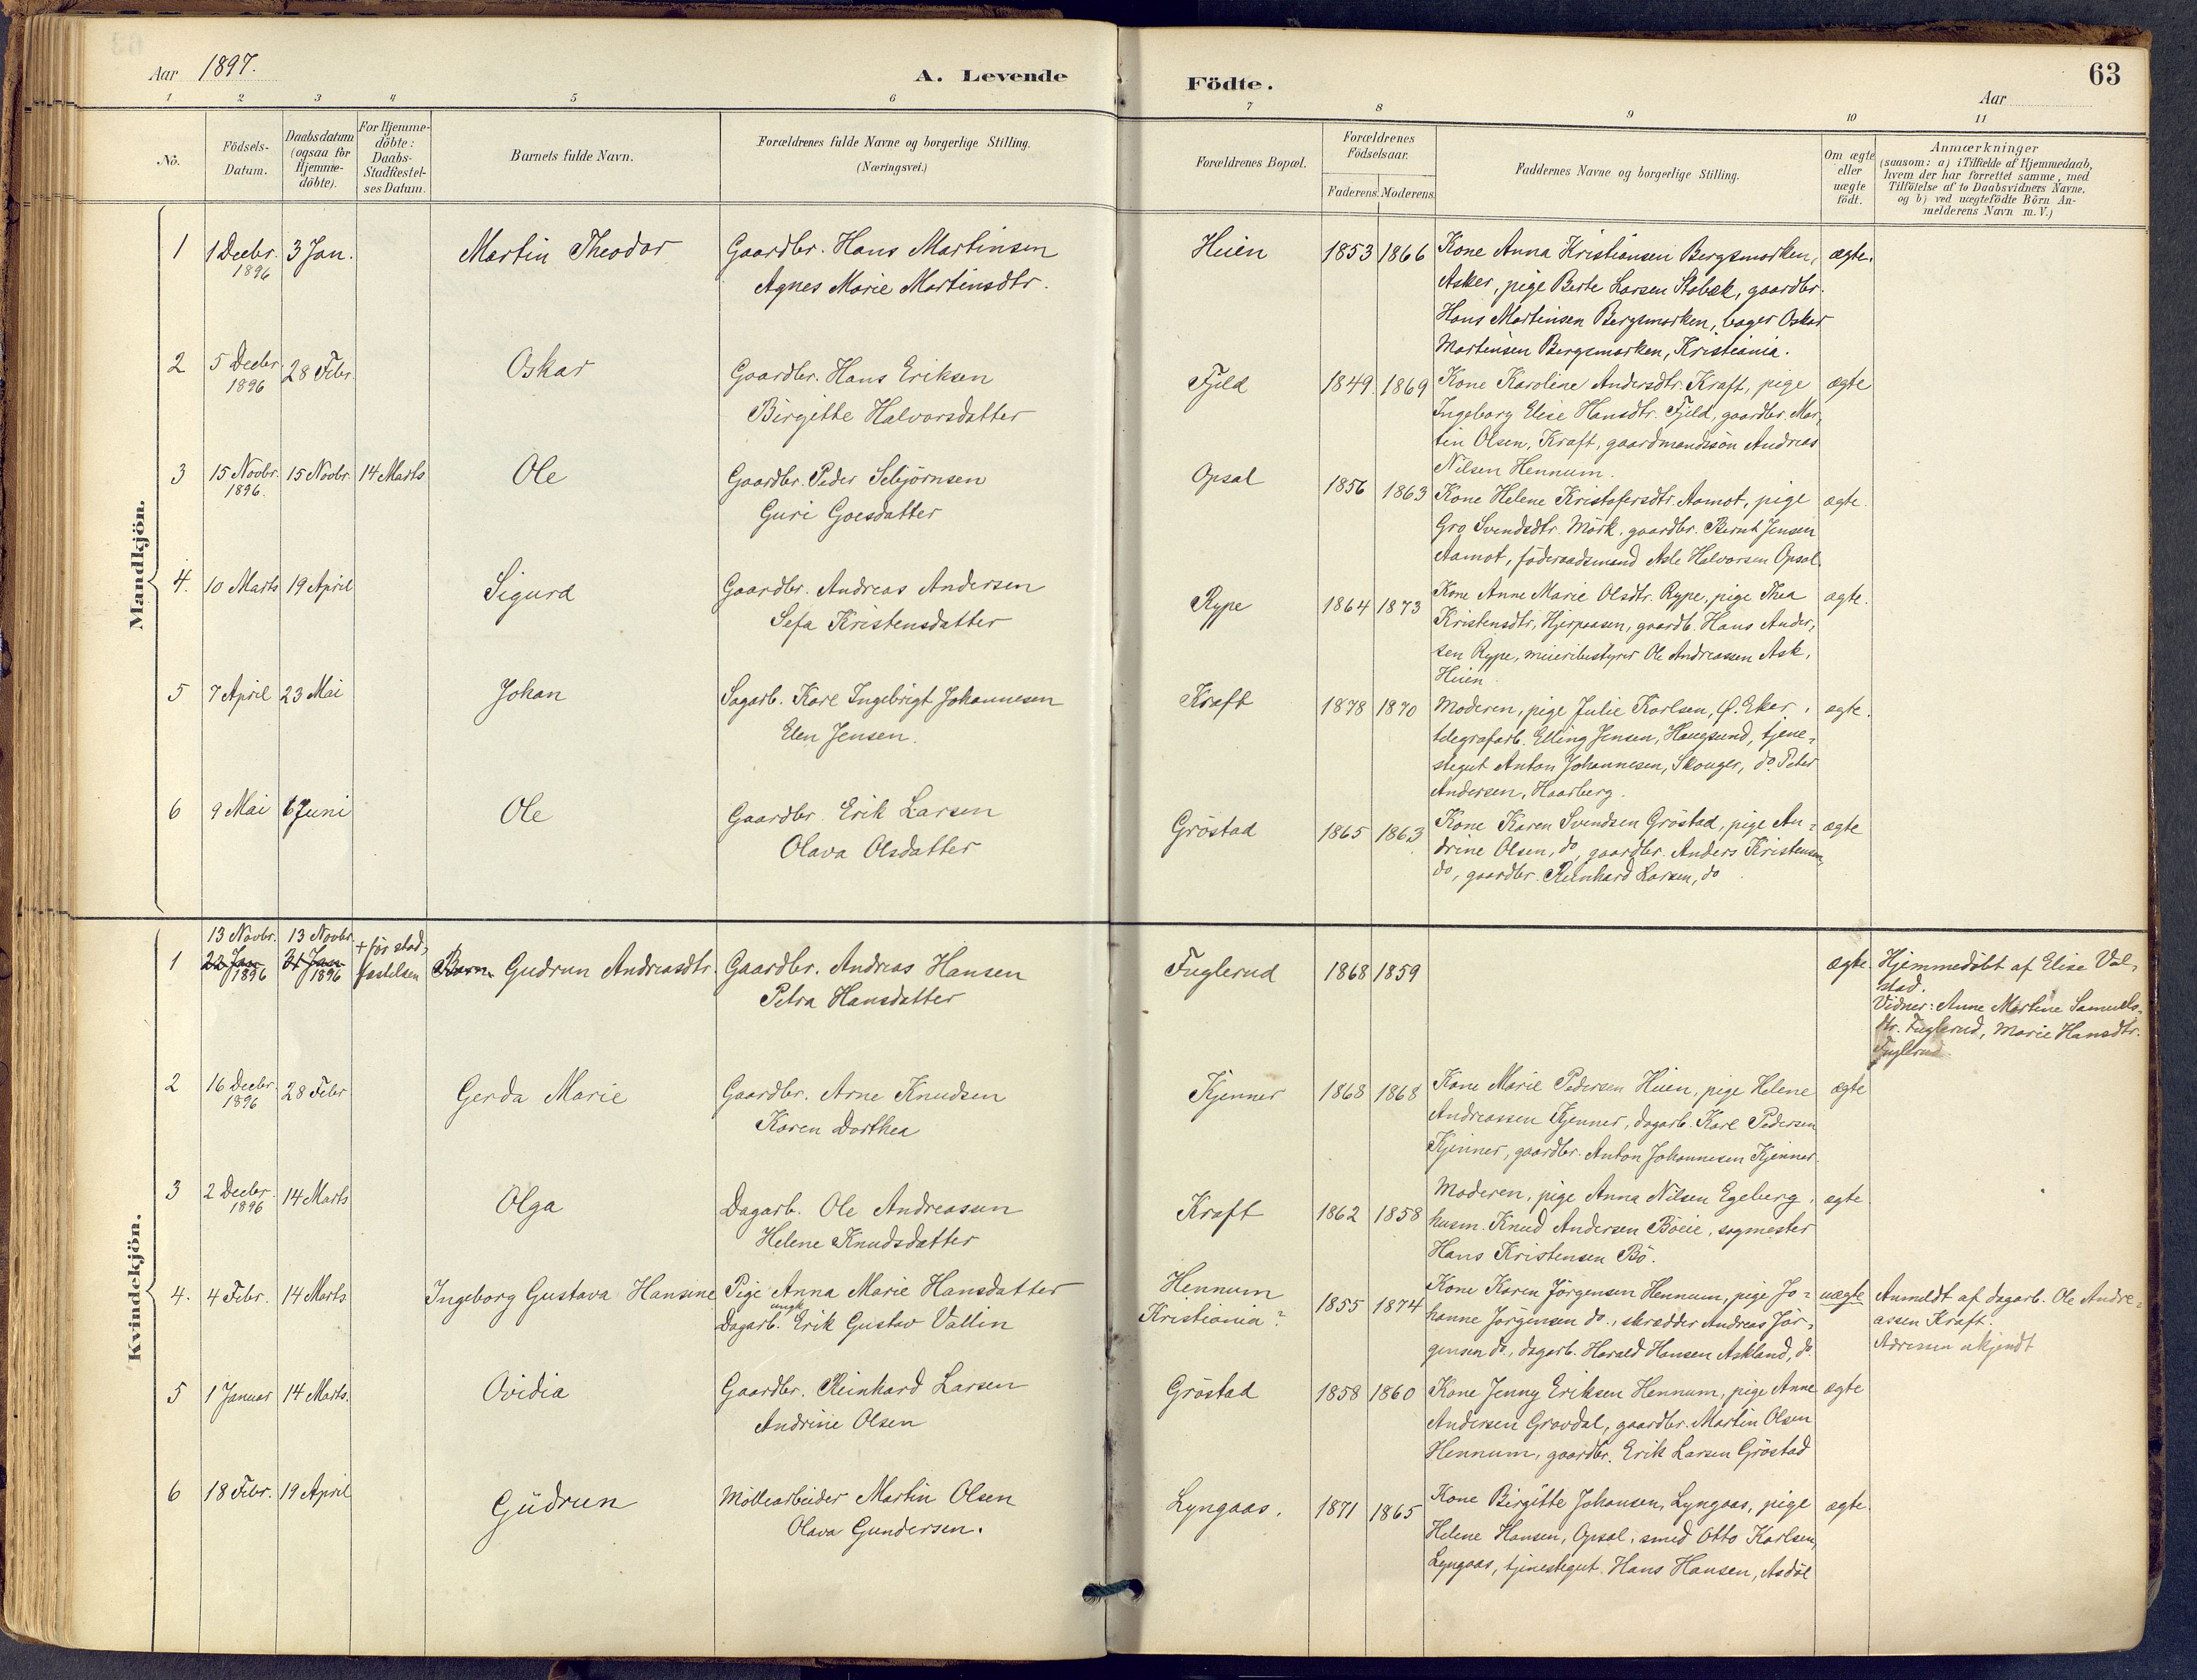 Aar 1897.
A. Levende Födte.
63
Aar
1 2 3 4 5 6 7 8 9 10 11
No.
Födsels-Datum.
Daabsdatum (ogsaa for Hjemme-döbte).
For Hjemme-döbte: Daabs-Stadfæstel-ses Datum.
Barnets fulde Navn.
Forældrenes fulde Navne og borgerlige Stilling. (Næringsvei.)
Forældrenes Bopæl.
Forældrenes Födselsaar.
Faderens. Moderens.
Faddernes Navne og borgerlige Stilling.
Om ægte eller uægte födt.
Anmærkninger (saasom: a) i Tilfælde af Hjemmedaab, hvem der har forrettet samme, med Tilföielse af to Daabsvidners Navne, og b) ved uægtefödte Börn An-melderens Navn m. V.)
Mandkjön.
1 1 Decbr. 1896 3 Jan. Martin Theodor Gaardbr. Hans Martinsen
Agnes Marie Martinsdtr.
Huien 1853 1866 Kone Anna Kristiansen Bergsmarken, ægte.
Asker, pige Berte Larsen Stabæk, gaardbr.
Hans Martinsen Bergsmarken, bager Oskar
Martinsen Bergsmarken, Kristiania.
2 5 Decbr. 1896 28 Febr. Oskar Gaardbr. Hans Eriksen
Birgitte Halvorsdatter
Fjeld 1849. 1869 Kone Karoline Andersdtr. Kraft, pige ægte
Ingeborg Elise Hansdtr. Fjeld, gaardbr. Mar-
tin Olsen, Kraft, gaardmandssön Andreas
Nilsen Hennum.
3 15 Novbr. 1896. 15 Novbr. 14 Marts Ole Gaardbr. Peder Sebjörnsen
Guri Goesdatter
Opsal 1856 1863 Kone Helene Kristofersdtr. Aamot, pige ægte.
Gro Svendsdtr. Mörk, gaardbr. Bernt Jensen
Aamot, föderaadsmand Asle Halvorsen Opsal
4. 10 Marts 19 April Sigurd Gaardbr. Andreas Andersen
Sefa Kristensdatter
Rype 1864 1873 Kone Anne Marie Olsdtr. Rype, pige Thea ægte.
Kristensdtr, Hjerpaasen, gaardb. Hans Ander-
sen Rype, meieribestyrer Ole Andreassen Ask,
Huien
5 7 April 23 Mai Johan Sagarb. Karl Ingebrigt Johannesen
Elen Jensen.
Kraft 1878 1870 Moderen, pige Julie Karlsen, Ø. Eker, ægte.
telegrafarb. Elling Jensen, Haugsund, tjene-
stegut Anton Johannesen, Skouger, do. Peter
Andersen, Haarberg.
6 9 Mai 6 Juni Ole Gaardbr. Erik Larsen
Olava Olsdatter
Gröstad 1865 1863 Kone Karen Svendsen Gröstad, pige An- ægte
drine Olsen, do, gaardbr. Anders Kristensen,
do, gaardbr. Reinhard Larsen, do
Kvindekjön.
1 13 Novbr. 22 Jan 1896 13 Novbr. 31 Jan 1896 + för stad-
fæstelsen Barn Gudrun Andreasdtr. Gaardbr. Andreas Hansen
Petra Hansdatter
Fuglerud 1868 1859 ægte. Hjemmedöbt af Elise Val-
stad.
Vidner: Anne Martine Samuels-
dtr. Fuglerud, Marie Hansdtr.
Fuglerud
2 16 Decbr. 1896 28 Febr Gerda Marie Gaardbr. Arne Knudsen
Karen Dorthea
Kjenner 1868 1868 Kone Marie Pedersen Huien, pige Helene ægte
Andreassen Kjenner, dagarb. Karl Pedersen
Kjenner, gaardbr. Anton Johannesen Kjenner.
3 2 Decbr. 1896 14 Marts Olga Dagarb. Ole Andreassen
Helene Knudsdatter
Kraft 1862 1858 Moderen, pige Anna Nilsen Egeberg, ægte
husm. Knud Andersen Böeie, sagmester
Hans Kristensen Bö.
4. 4 Febr. 14 Marts Ingeborg Gustava Hansine Pige Anna Marie Hansdatter
ungk.
Dagarb. Erik Gustav Vallin
Hennum
Kristiania?
1855 1874 Kone Karen Jörgensen Hennum, pige Jo- uægte Anmeldt af dagarb. Ole Andre-
hanne Jörgensen do., skrædder Andreas Jör- assen Kraft.
gensen do., dagarb. Harald Hansen Askland, do. Adressen ukjendt
5 1 Januar 14 Marts. Ovidia Gaardbr. Reinhard Larsen
Andrine Olsen
Gröstad 1858 1860 Kone Jenny Eriksen Hennum, pige Anne ægte
Andersen Gravdal, gaardbr. Martin Olsen
Hennum, gaardbr. Erik Larsen Gröstad
6 18 Febr. 19 April Gudrun Möllearbeider Martin Olsen
Olava Gundersen.
Lyngaas. 1871 1865 Kone Birgitte Johansen, Lyngaas, pige ægte.
Helene Hansen, Opsal, smed Otto Karlsen,
Lyngaas, tjenestegut Hans Hansen, Asdöl